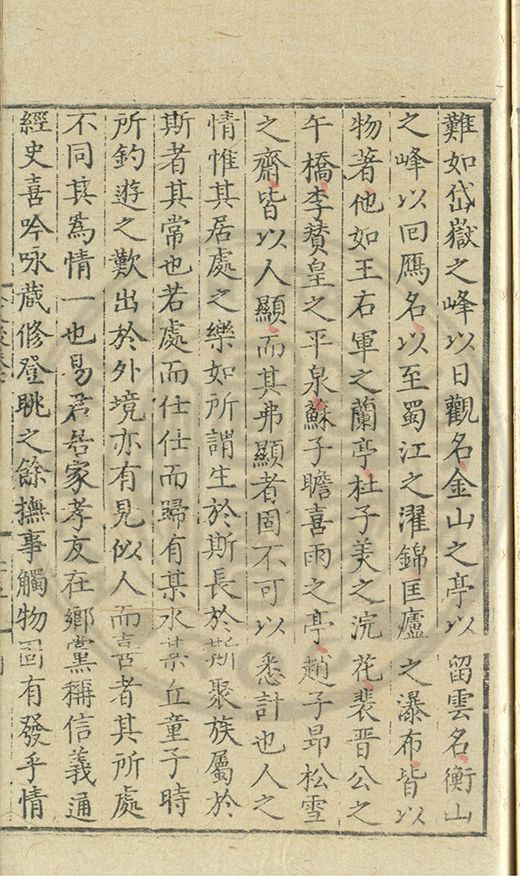 難如岱嶽之峰以日觀名金山之亭以留雲名衡山
之峰以回鴈名以至蜀江之濯錦匡廬之瀑布皆以
物著他如王右軍之蘭亭杜子美之浣花裴晉公之
午橋李賛皇之平泉蘇子瞻喜雨之亭趙子昻松雪
之齋皆以人顯而其弗顯者固不可以悉計也人之
情惟其居處之樂如所謂生於斯長於斯聚族屬於
斯者其常也若處而仕仕而歸有某水某丘童子時
所釣遊之歎出於外境亦有見似人而喜者其所處
不同其為情一也易君居家孝友在鄉黨稱信義通
經史喜吟咏蔵修登眺之餘撫事觸物固有發乎情